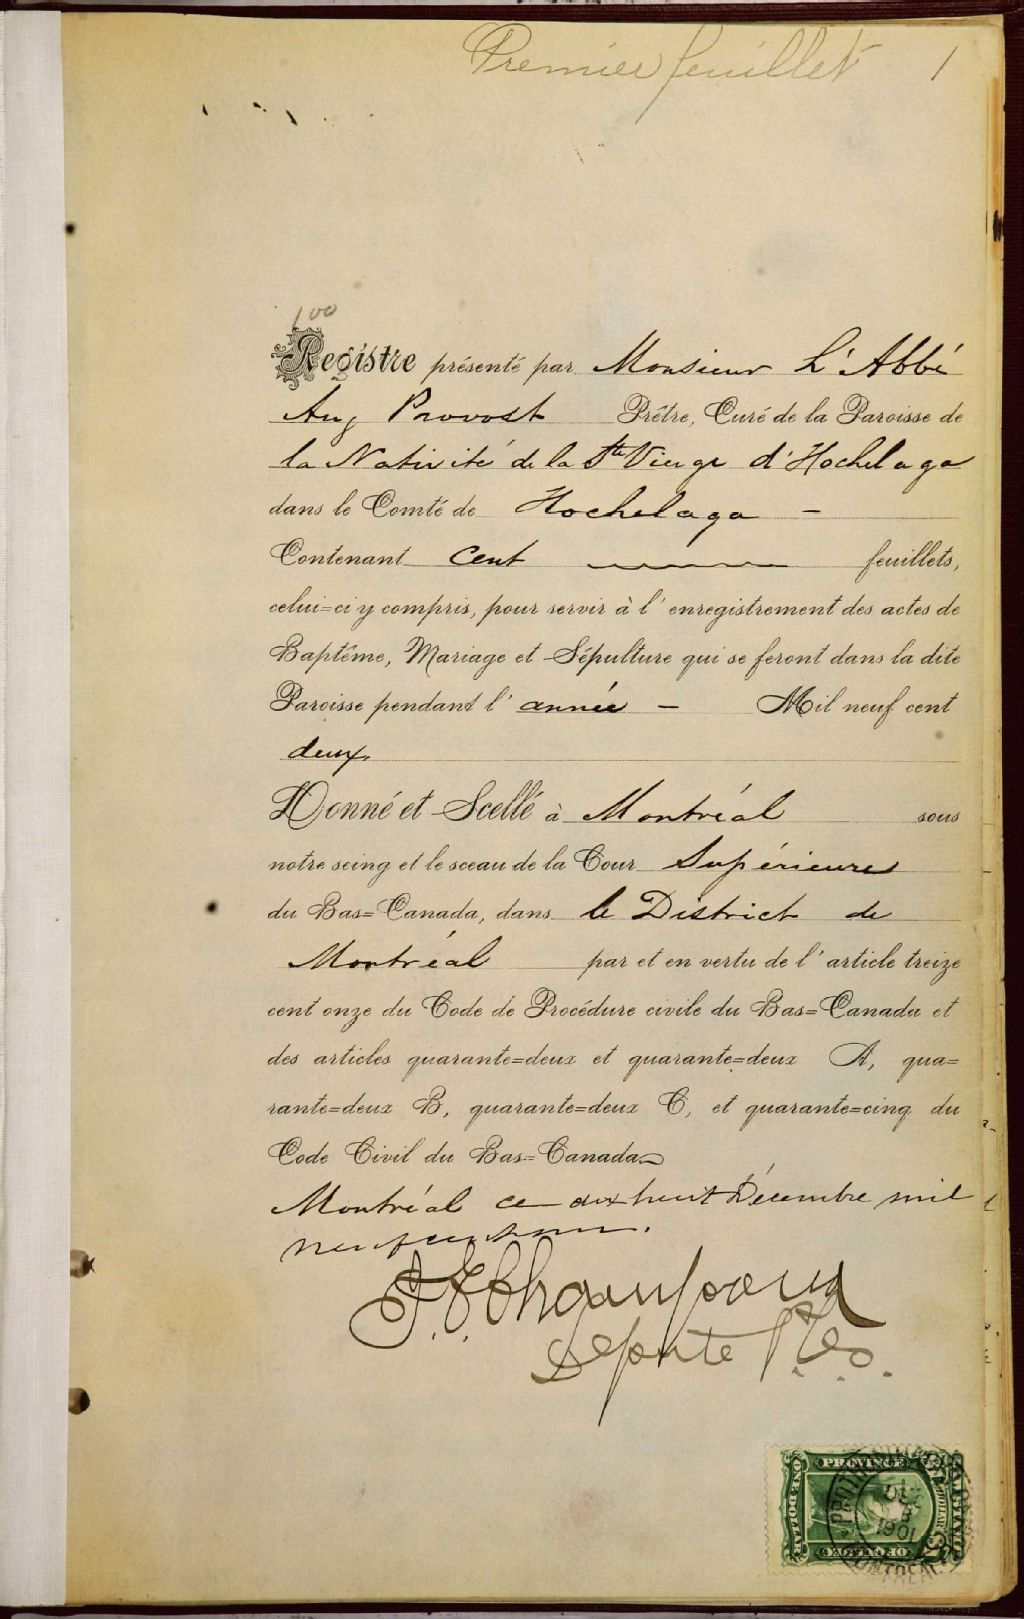 Premier feuillet 1
100
Registre présenté par Monsieur L'Abbé
Aug Provost Prêtre, Curé de la Paroisse de
la Nativité de la Ste Vierge d'Hochelaga
dans le Comté de Hochelaga -
Contenant cent feuillets,
celui=ci y compris, pour servir à l'enregistrement des actes de
Baptême, Mariage et Sépulture qui se feront dans la dite
Paroisse pendant l'année - Mil neuf cent
deux.
Donné et Scellé à Montréal sous
notre seing et le sceau de la Cour Supérieure
du Bas=Canada, dans le District de
Montréal par et en vertu de l'article treize
cent onze du Code de Procédure civile du Bas=Canada et
des articles quarante=deux et quarante=deux A, qua=
rante=deux B, quarante=deux C, et quarante=cinq du
Code Civil du Bas=Canada
Montréal ce dix huit Décembre mil
neuf cent un.
Députe P.C.S.
PROVINCE
DOLLAR
MONTREAL
1901